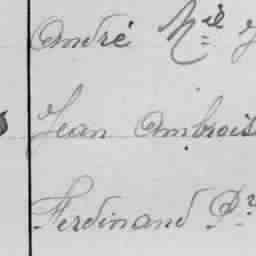 André N.el J
Jean Ambrois
Ferdinand P.r